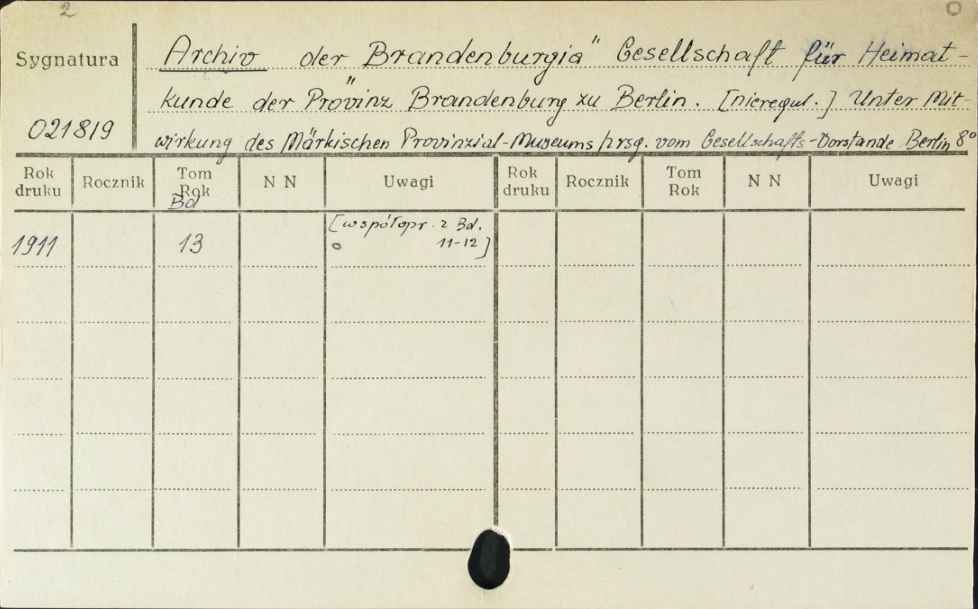 2
Sygnatura
021819
Archiv der Brandenburgia" Gesellschaft für Heimat-
kunde der Provinz Brandenburg zu Berlin. [nieregul.] Unter Mit-
wirkung des Märkischen Provinzial-Museums hrsg. vom Gesellschafts-Vorstande Berlin 8°
Rok druku Rocznik Tom Rok Bd N N Uwagi Rok druku Rocznik Tom Rok N N Uwagi
1911 13 [współopr. z Bd.
11-12]